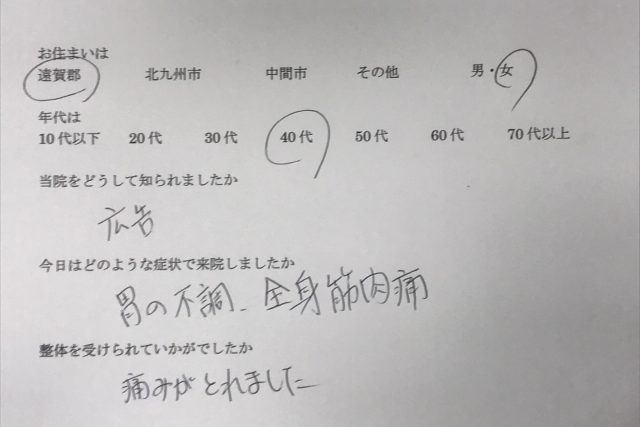 お住まいは
遠賀郡 北九州市 中間市 その他 男・女
年代は
10代以下 20代 30代 40代 50代 60代 70代以上
当院をどうして知られましたか
広告
今日はどのような症状で来院しましたか
胃の不調、全身筋肉痛
整体を受けられていかがでしたか
痛みがとれました